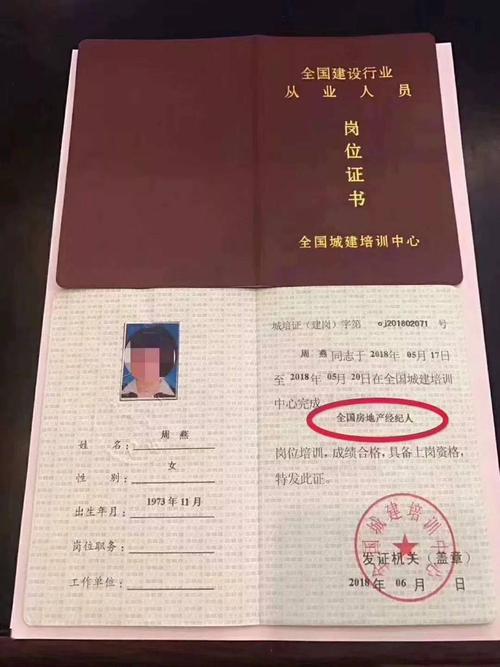 全国建设行业
从业人员
岗位证书
全国城建培训中心
城培证（建岗）字第 oj201802071 号
周燕 同志于 2018 年 05 月 17 日
至 2018 年 05 月 20 日在全国城建培训
中心完成
全国房地产经纪人
岗位培训，成绩合格，具备上岗资格，
特发此证。
姓名： 周燕
性别： 女
出生年月： 1973 年 11 月
岗位职务：
工作单位：
全国城建培训中心
发证机关（盖章）
2018 年 06 月 日